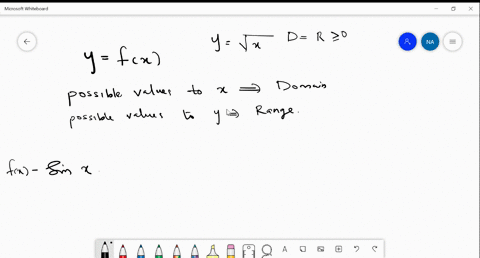 Microsoft Whiteboard
NA
y = √x D = R ≥0
y = f(x)
possible values to x ⟹ Domain
possible values to y ⟹ Range.
f(x) - Sin x
A